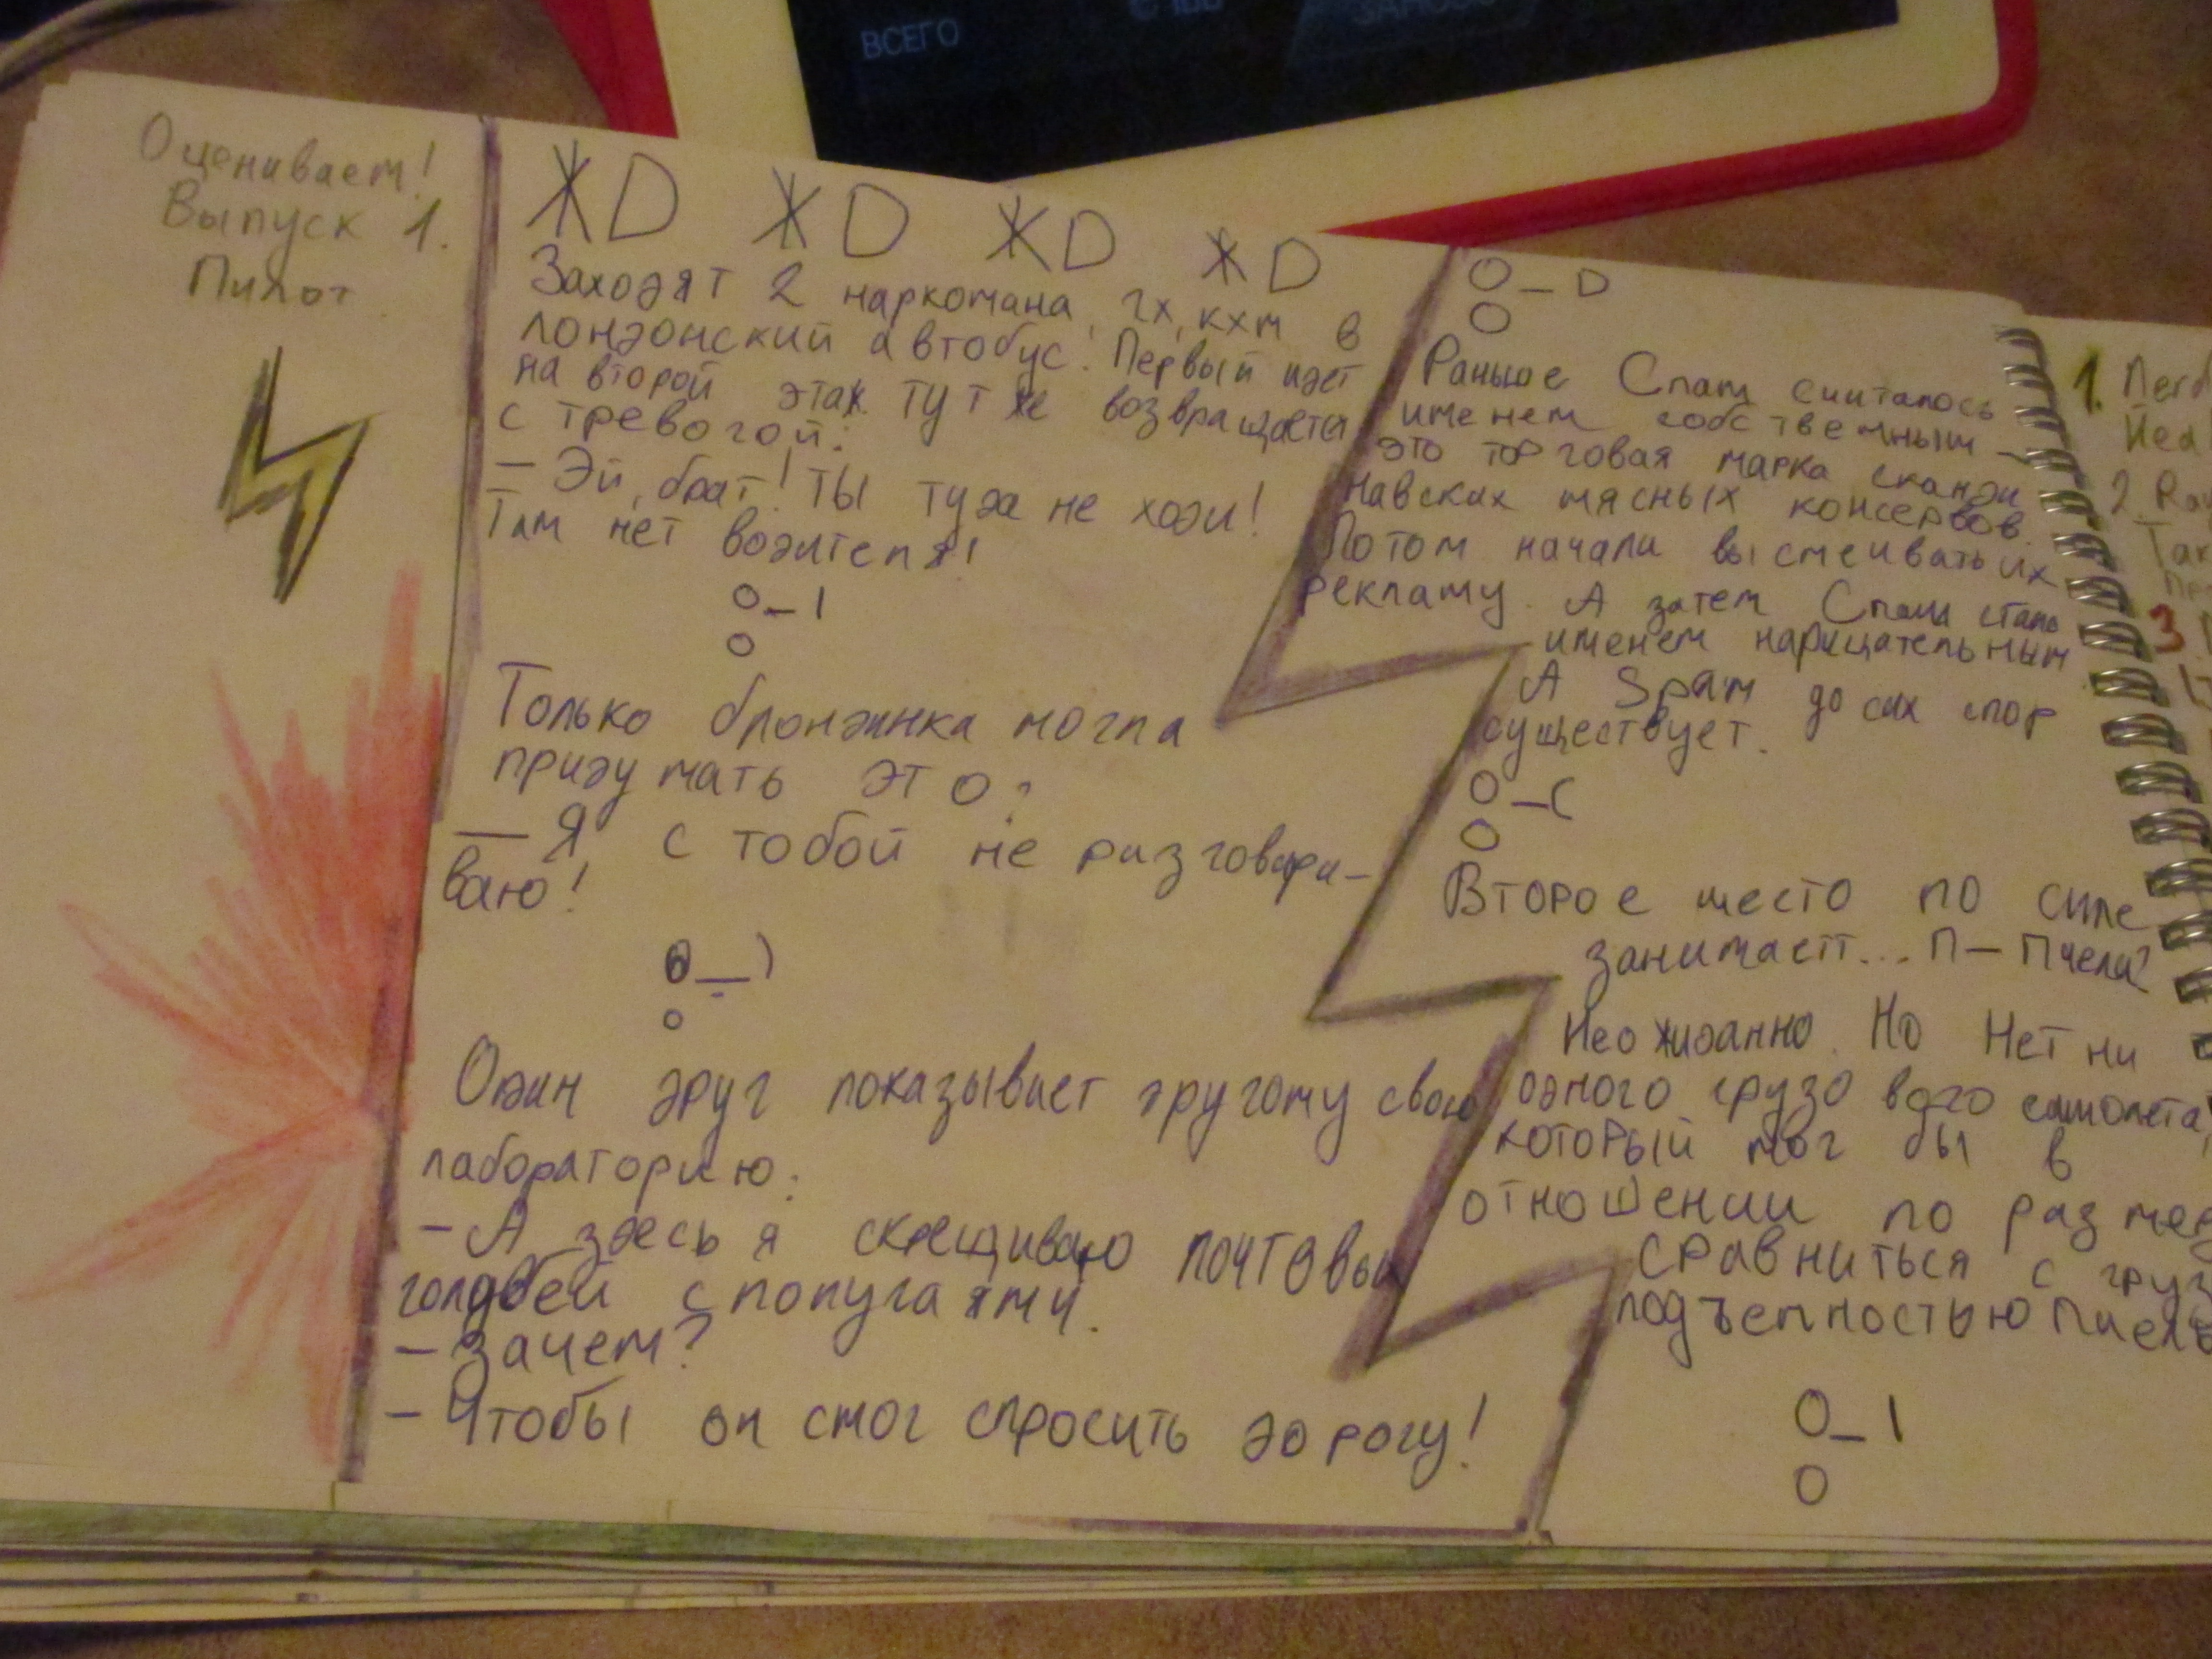 ВСЕГО
Оцениваем!
Выпуск 1.
Пилот
ЖD ЖD ЖD ЖD
Заходят 2 наркомана, гх, кхм в
лондонский автобус. Первый идет
на второй этаж тут же возвращается
с тревогой:
— Эй, брат! Ты туда не ходи!
Там нет водителя!
O_I
O
Только блондинка могла
придумать это:
— Я с тобой не разговари-
ваю!
O_)
O
Один друг показывает другому свою
лабораторию:
- А здесь я скрещиваю почтовых
голубей с попугаями.
- Зачем?
- Чтобы он смог спросить дорогу!
O_D
O
Раньше Спам считалось
именем собственным -
это торговая марка сканди
навских мясных консервов.
Потом начали высмеивать их
рекламу. А затем Спам стало
именем нарицательным
А Spam до сих спор
существует.
O_(
O
Второе место по силе
занимает... П-Пчела?
Неожиданно. Но Нет ни
одного грузового самолета,
который мог бы в
отношении по размер
сравниться с груз
подъемностью пчелы
O_I
O
1.
2.
3